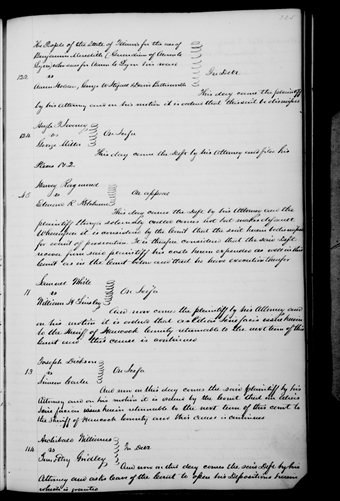 The People of the State of Illinois for the use of
Benjamin Meredith (Guardian of Alcinda
Lyon) who sues for Aaron to Lyon his ward
132 vs In Debt
George W Stipes &
This day came the plaintiff
by his Attorney and on his motion it is ordered that this suit be dismissed
Hugh P Sweney
134 vs On Scifa
George Miller
This day came the Deft by his Attorney and files his
Pleas 1 & 2.
Henry Raymond
vs On appeal
Edward R
This day came the Deft by his Attorney and the
plaintiff though solemnly called comes not but makes default
Whereupon it is considered by the Court that the suit herein be dismissed
for want of prosecution It is therefore considered that the said Deft
recover from said plaintiff his costs herein expended as well in this
Court as in the Court below and that he have execution therefor
Samuel White
11 vs On Scifa
William H Tinsley
And now came the plaintiff by his Attorney and
on his motion it is ordered that an alias Scire facias issue herein
to the Sheriff of Hancock County returnable to the next term of this
Court and this cause is continued
Joseph Dickson
13 vs On Scifa
Simeon Carter
And now on this day comes the said plaintiff by his
Attorney and on his motion it is ordered by the Court that an alias
Scire facias issue herein returnable to the next term of this court to
the Sheriff of Hancock County and this cause is continued
Archibald Williams
114 vs In Debt
Gridley
And now on this day comes the said Deft by his
Attorney and asks leave of the Court to open his Depositions herein
which is granted